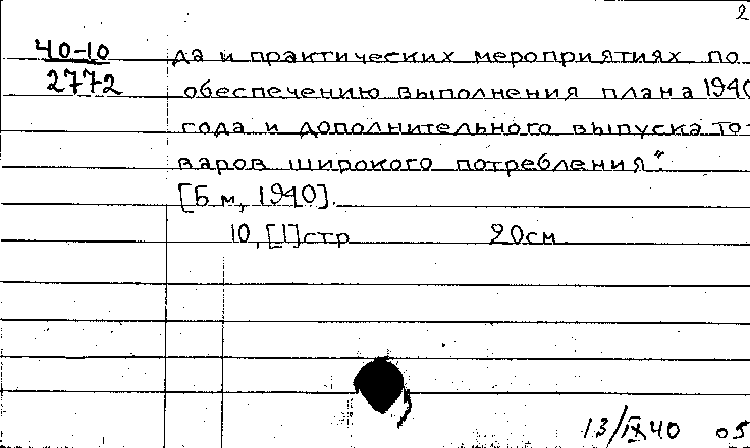 2
40-10
2772
да и практических мероприятиях по
обеспечению выполнения плана 1940
года и дополнительного выпуска то-
варов широкого потребления".
[Б м, 1940].
10, [1] стр 20 см
13/IX 40 05